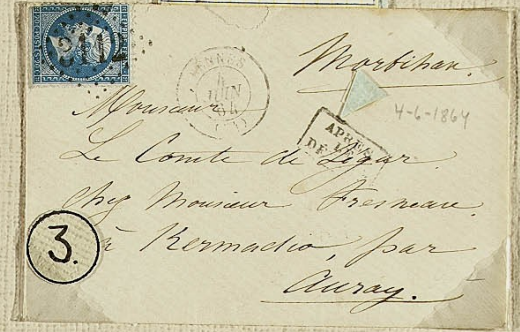 4112
VANNES
4
JUIN
64
Morbihan.
4-6-1864
APRÈS
LE
DÉ
Monsieur
Le Comte de Ségur.
chez Monsieur Fresneau.
à Kermadio, par
Auray.
3.